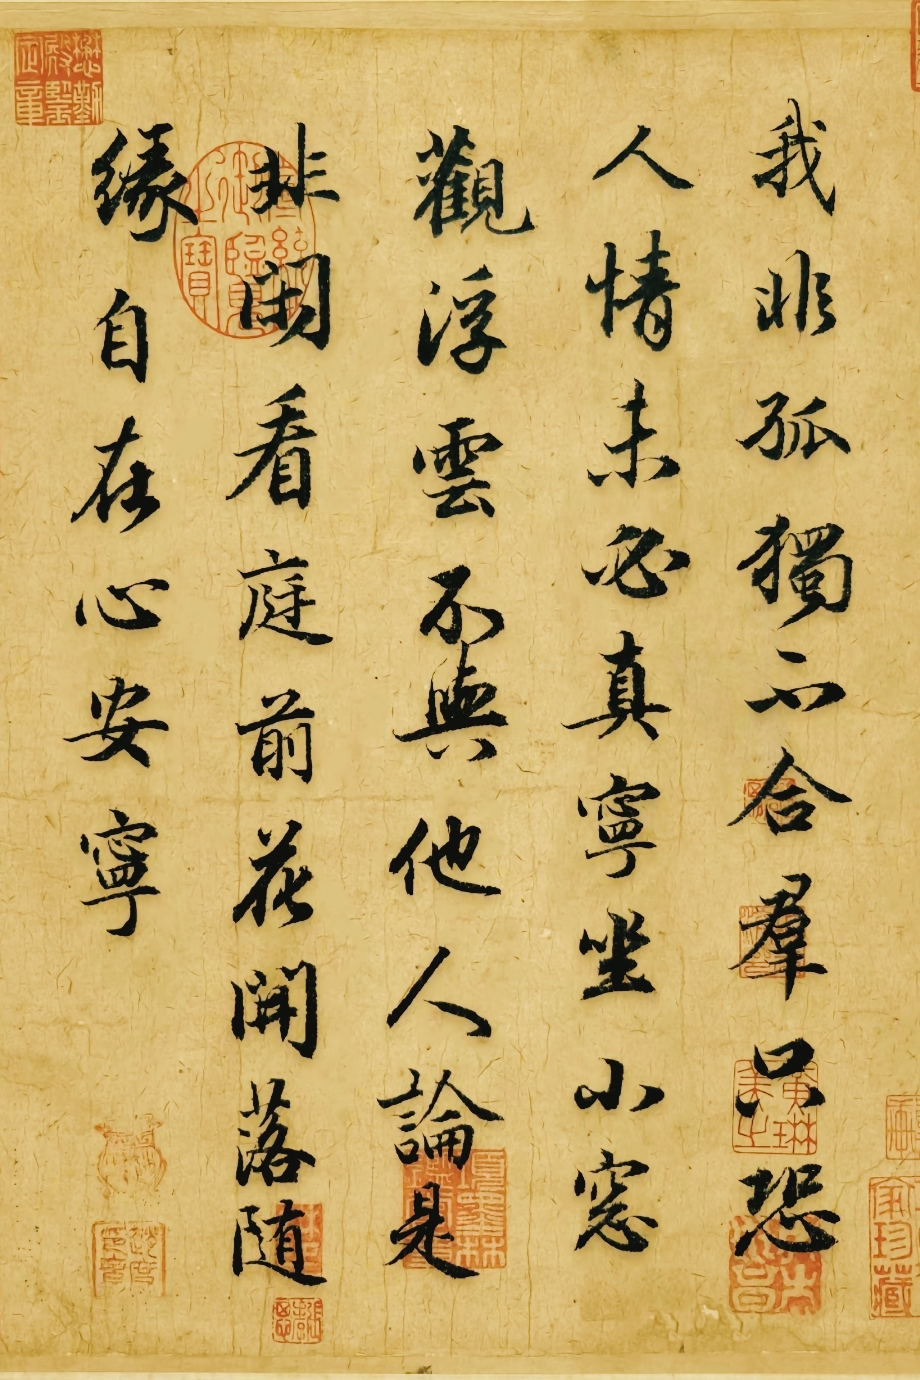 我非孤獨不合羣只恐
人情未必真寧坐小窓
觀浮雲不與他人論是
非閑看庭前花開落随
緣自在心安寧